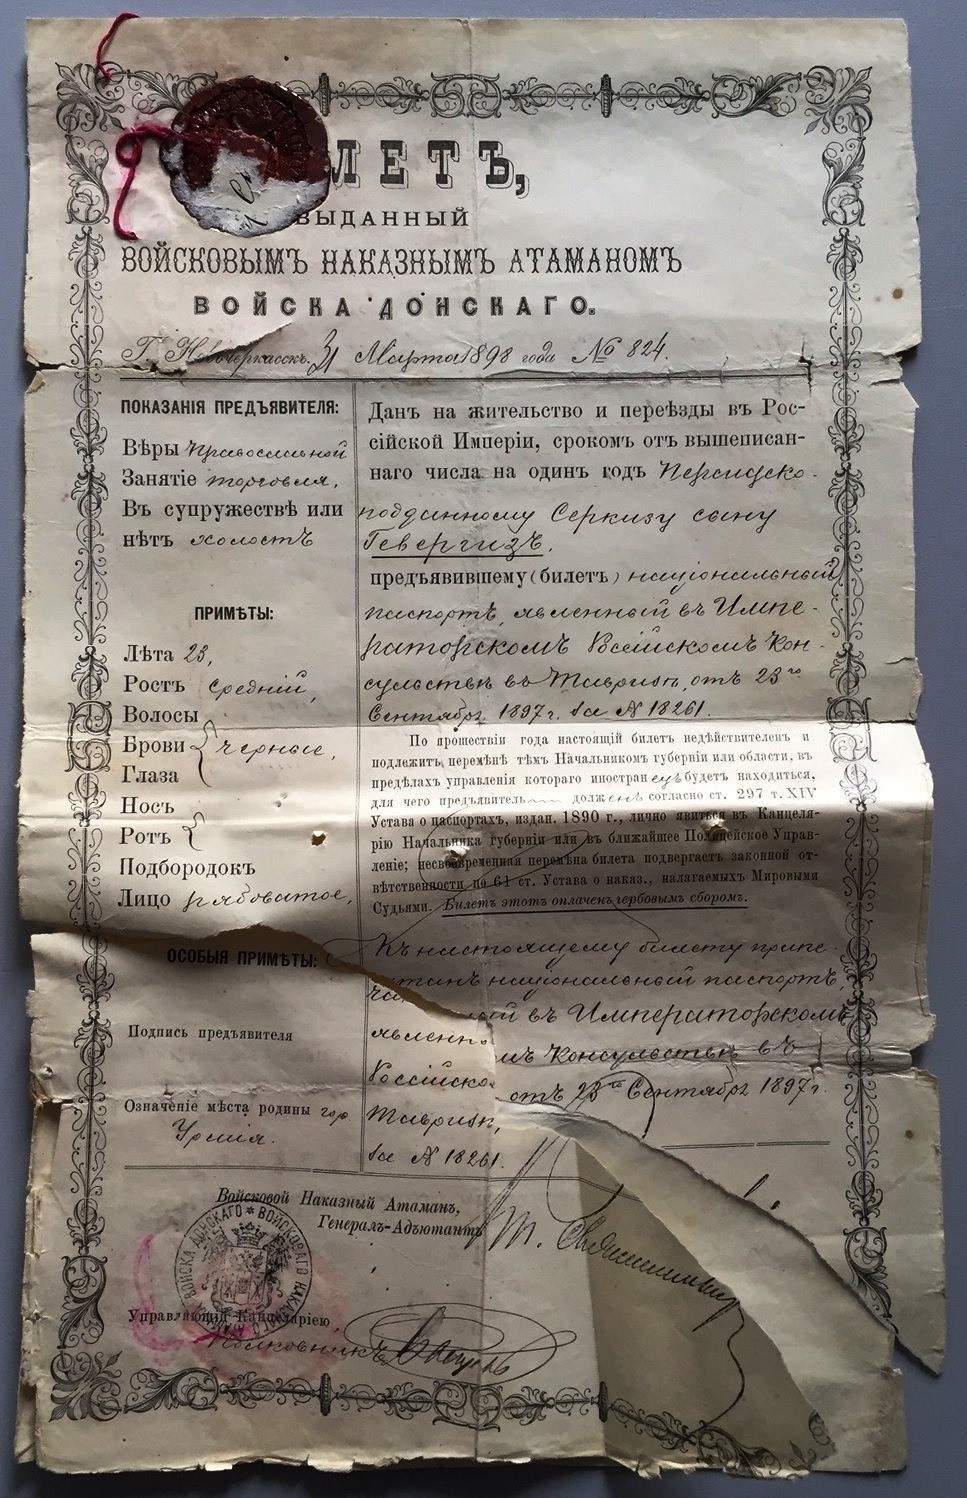 ЛЕТЪ,
ВЫДАННЫЙ
ВОЙСКОВЫМЪ НАКАЗНЫМЪ АТАМАНОМЪ
ВОЙСКА ДОНСКАГО.
Г. Новочеркасскъ. 31 Марта 1898 года № 824.
ПОКАЗАНІЯ ПРЕДЪЯВИТЕЛЯ:
Вѣры православной
Занятіе торговля,
Въ супружествѣ или
нѣтъ холостъ
ПРИМѢТЫ:
Лѣта 23,
Ростъ средній,
Волосы
Брови черные,
Глаза
Носъ
Ротъ
Подбородокъ
Лицо рябоватое,
ОСОБЫЯ ПРИМѢТЫ:
Подпись предъявителя
Означеніе мѣста родины гор.
Урмія.
Данъ на жительство и переѣзды въ Рос-
сійской Имперіи, срокомъ отъ вышеписан-
наго числа на одинъ годъ Персидско-
подданному Серкизу сыну
Гевергизъ,
предъявившему (билетъ) національный
паспортъ, явленный въ Импе-
раторскомъ Россійскомъ Кон-
сульствѣ въ Тавризѣ, отъ 23го
Сентября 1897 г. за № 18261.
По прошествіи года настоящій билетъ недѣйствителенъ и
подлежитъ перемѣнѣ тѣмъ Начальникомъ губерніи или области, въ
предѣлахъ управленія котораго иностранецъ будетъ находиться,
для чего предъявитель долженъ согласно ст. 297 т. XIV
Устава о паспортахъ, издан. 1890 г., лично явиться въ Канцеля-
рію Начальника губерніи или въ ближайшее Полицейское Управ-
леніе; несвоевременная перемѣна билета подвергаетъ законной от-
вѣтственности по 61 ст. Устава о наказ., налагаемыхъ Мировыми
Судьями. Билетъ этотъ оплаченъ гербовымъ сборомъ.
Къ настоящему билету припе-
чатанъ національный паспортъ,
явленный въ Императорскомъ
Россійскомъ Консульствѣ въ
Тавризѣ, отъ 23го Сентября 1897 г.
за № 18261.
Войсковой Наказный Атаманъ,
Генералъ-Адъютантъ
Управляющій Канцеляріею,
Полковникъ
ВОЙСКА ДОНСКАГО * ВОЙСКОВАГО НАКАЗНАГО АТАМАНА